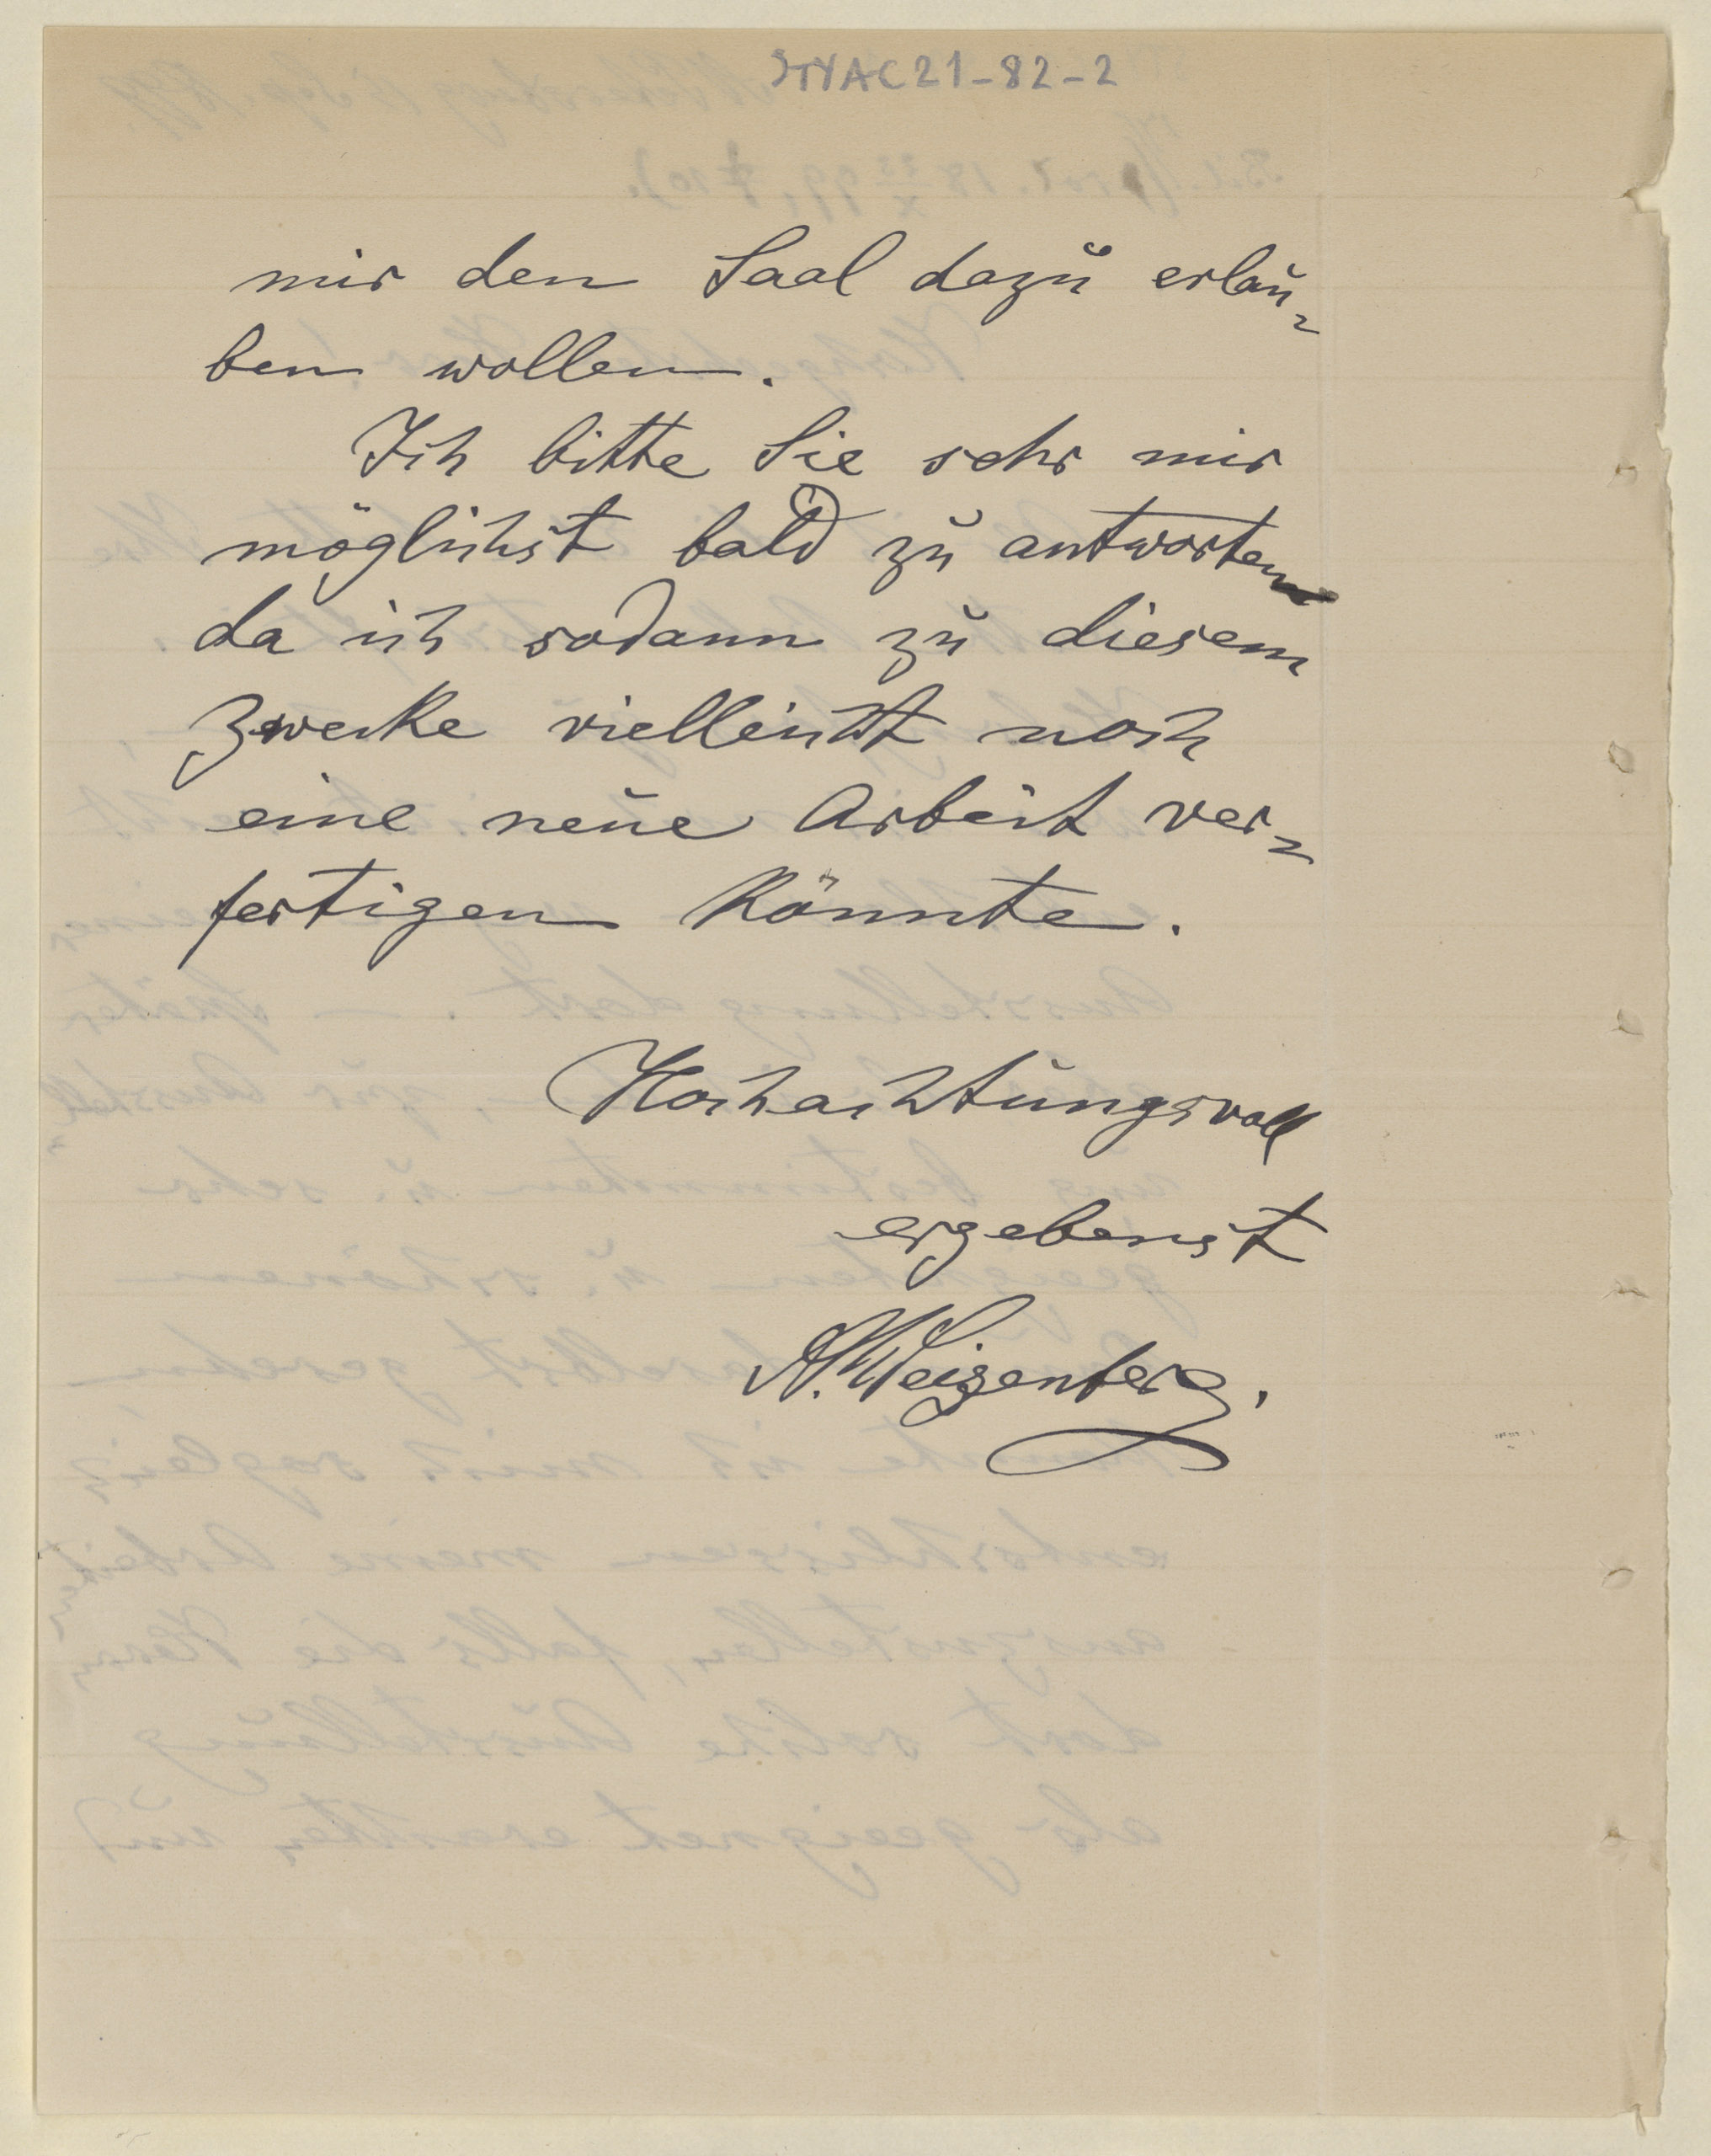 STYAC21-82-2
mir den Saal dazu erlau-
ben wollen.
Ich bitte Sie sehr mir
möglichst bald zu antworten
da ich sodann zu diesem
Zwecke vielleicht noch
eine neue Arbeit ver-
fertigen könnte.
Hochachtungsvoll
ergebenst
A. Weizenberg.